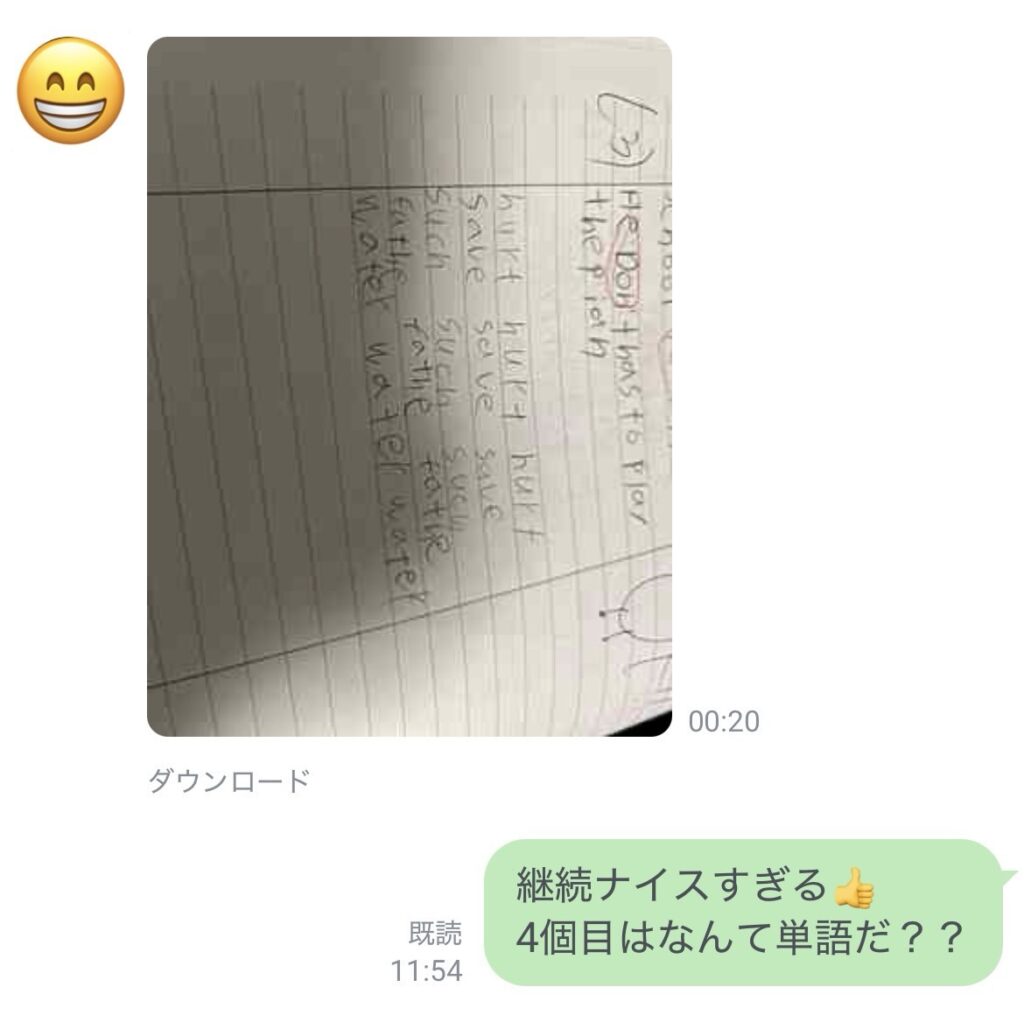 (3) He Dont has to Play
the pian
hurt hurt hurt
save save save
such such such
fathe rathe rathe
water water water
00:20
ダウンロード
継続ナイスすぎる👍
4個目はなんて単語だ？？
既読
11:54